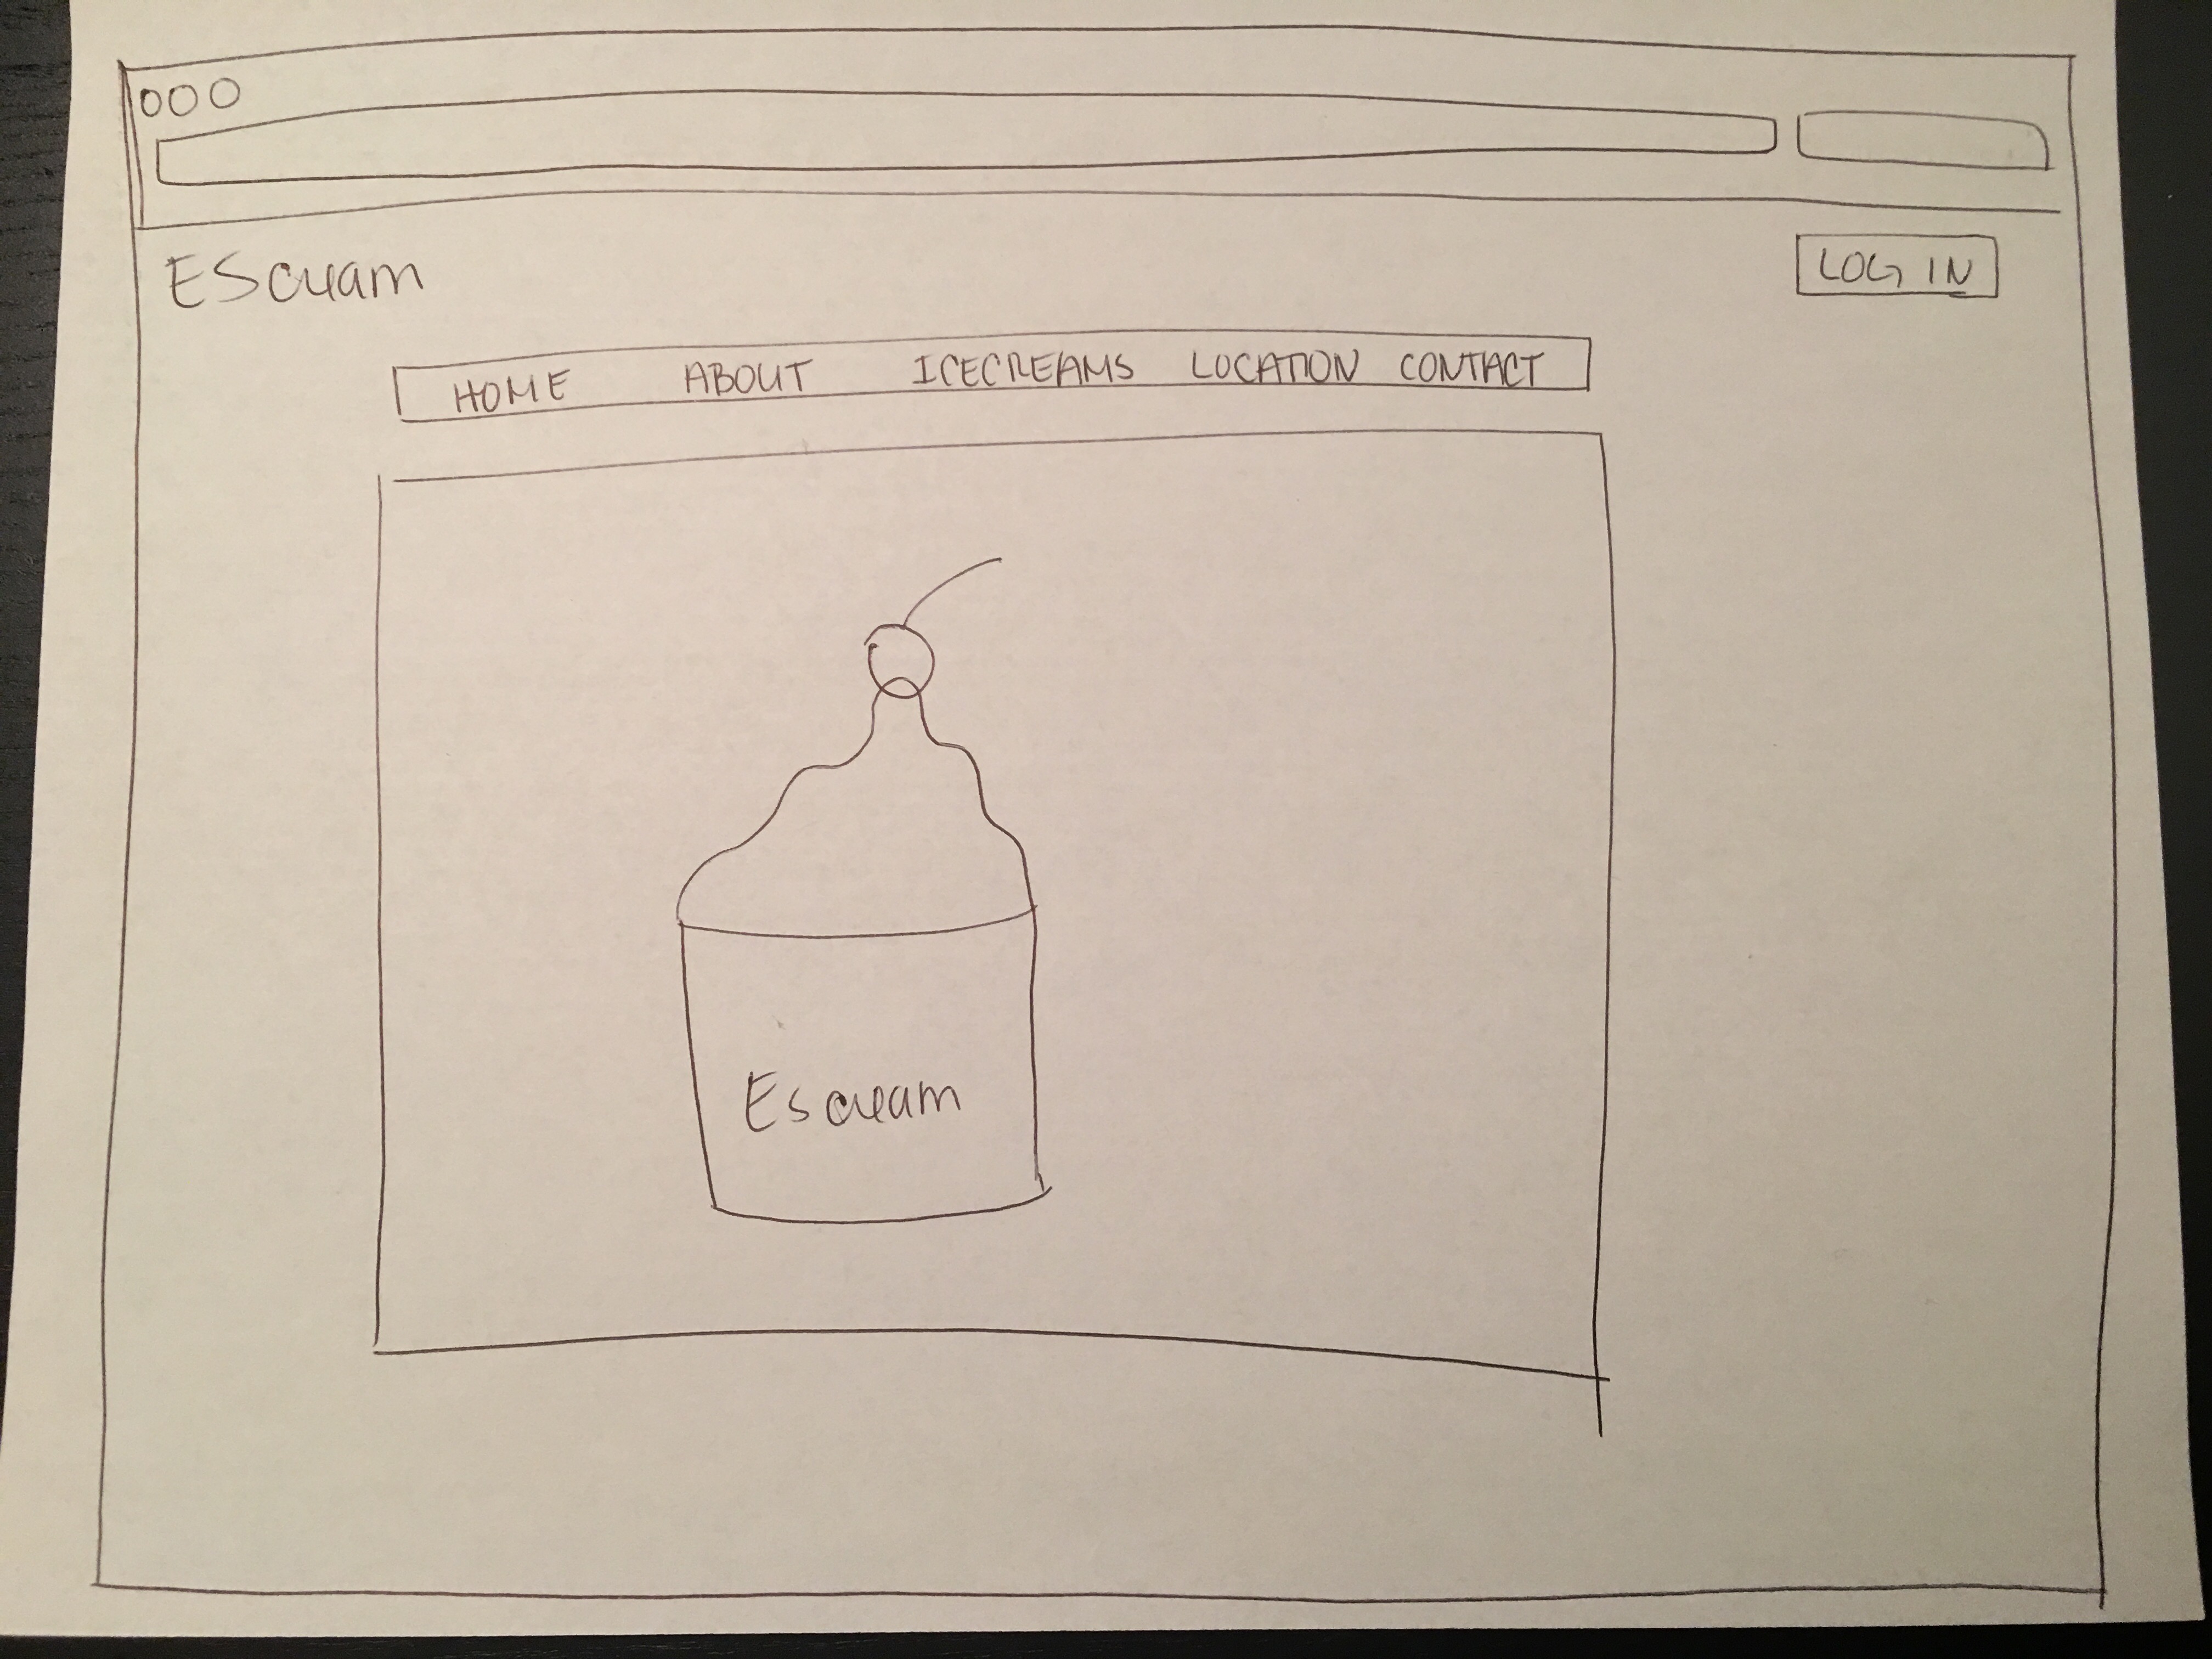 EScream
LOG IN
HOME ABOUT ICECREAMS LOCATION CONTACT
Escream